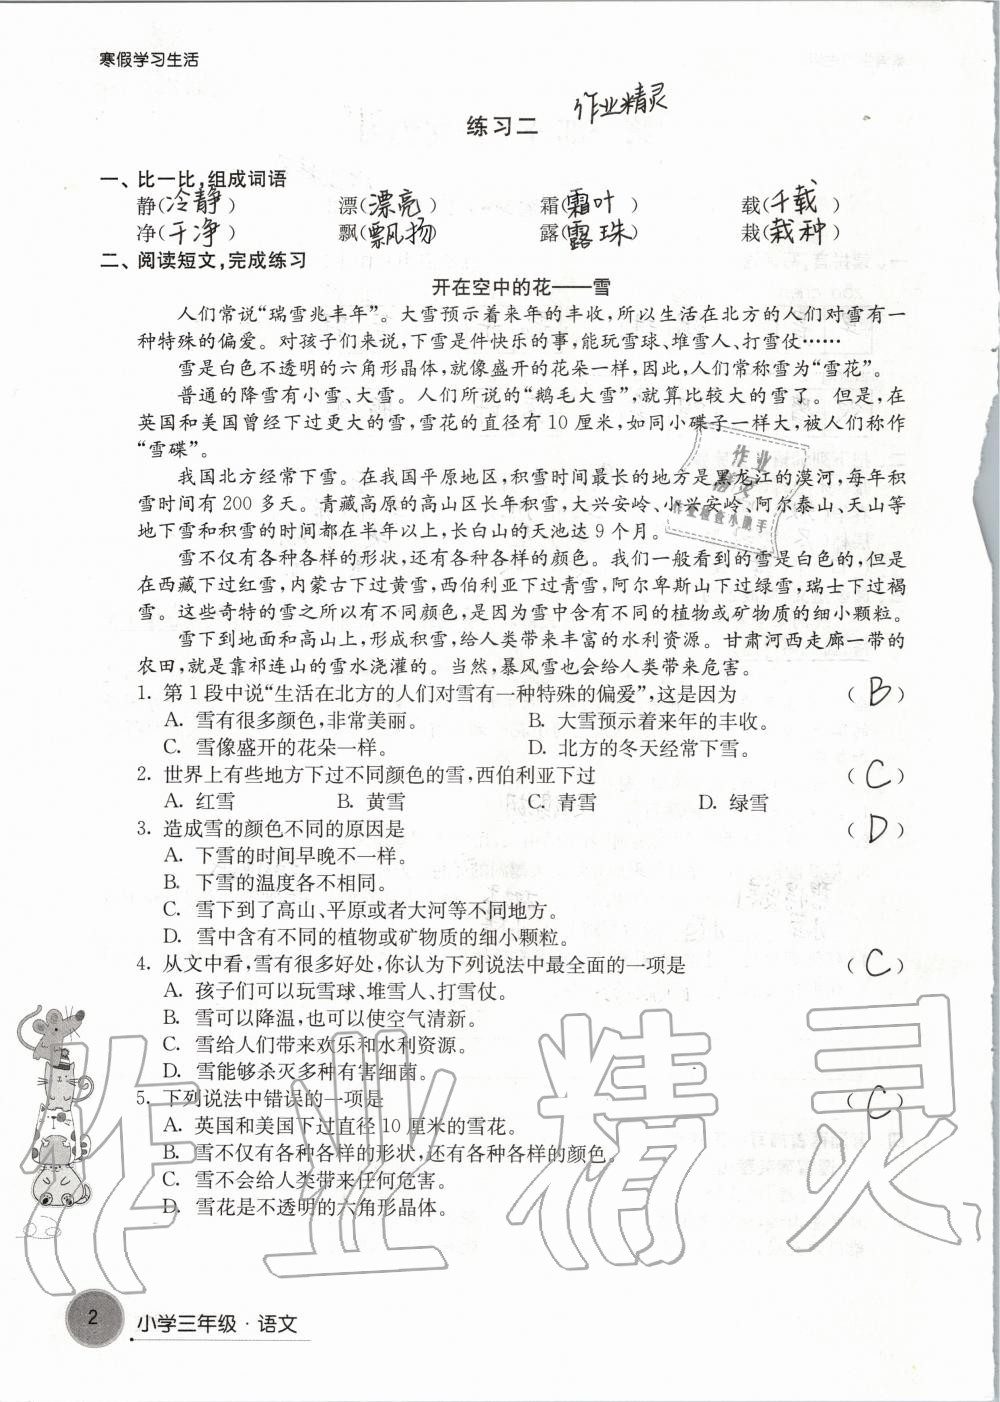 寒假学习生活
作业精灵
练习二
一、比一比,组成词语
静(冷静) 漂(漂亮) 霜(霜叶) 载(千载)
净(干净) 飘(飘扬) 露(露珠) 栽(栽种)
二、阅读短文,完成练习
开在空中的花——雪
人们常说“瑞雪兆丰年”。大雪预示着来年的丰收,所以生活在北方的人们对雪有一
种特殊的偏爱。对孩子们来说,下雪是件快乐的事,能玩雪球、堆雪人、打雪仗……
雪是白色不透明的六角形晶体,就像盛开的花朵一样,因此,人们常称雪为“雪花”。
普通的降雪有小雪、大雪。人们所说的“鹅毛大雪”,就算比较大的雪了。但是,在
英国和美国曾经下过更大的雪,雪花的直径有 10 厘米,如同小碟子一样大,被人们称作
“雪碟”。
我国北方经常下雪。在我国平原地区,积雪时间最长的地方是黑龙江的漠河,每年积
雪时间有 200 多天。青藏高原的高山区长年积雪,大兴安岭、小兴安岭、阿尔泰山、天山等
地下雪和积雪的时间都在半年以上,长白山的天池达 9 个月。
雪不仅有各种各样的形状,还有各种各样的颜色。我们一般看到的雪是白色的,但是
在西藏下过红雪,内蒙古下过黄雪,西伯利亚下过青雪,阿尔卑斯山下过绿雪,瑞士下过褐
雪。这些奇特的雪之所以有不同颜色,是因为雪中含有不同的植物或矿物质的细小颗粒。
雪下到地面和高山上,形成积雪,给人类带来丰富的水利资源。甘肃河西走廊一带的
农田,就是靠祁连山的雪水浇灌的。当然,暴风雪也会给人类带来危害。
1. 第 1 段中说“生活在北方的人们对雪有一种特殊的偏爱”,这是因为 (B)
A. 雪有很多颜色,非常美丽。 B. 大雪预示着来年的丰收。
C. 雪像盛开的花朵一样。 D. 北方的冬天经常下雪。
2. 世界上有些地方下过不同颜色的雪,西伯利亚下过 (C)
A. 红雪 B. 黄雪 C. 青雪 D. 绿雪
3. 造成雪的颜色不同的原因是 (D)
A. 下雪的时间早晚不一样。
B. 下雪的温度各不相同。
C. 雪下到了高山、平原或者大河等不同地方。
D. 雪中含有不同的植物或矿物质的细小颗粒。
4. 从文中看,雪有很多好处,你认为下列说法中最全面的一项是 (C)
A. 孩子们可以玩雪球、堆雪人、打雪仗。
B. 雪可以降温,也可以使空气清新。
C. 雪给人们带来欢乐和水利资源。
D. 雪能够杀灭多种有害细菌。
5. 下列说法中错误的一项是 (C)
A. 英国和美国下过直径 10 厘米的雪花。
B. 雪不仅有各种各样的形状,还有各种各样的颜色。
C. 雪不会给人类带来任何危害。
D. 雪花是不透明的六角形晶体。
作业
精灵
作业检查小助手
作业精灵
2 小学三年级·语文